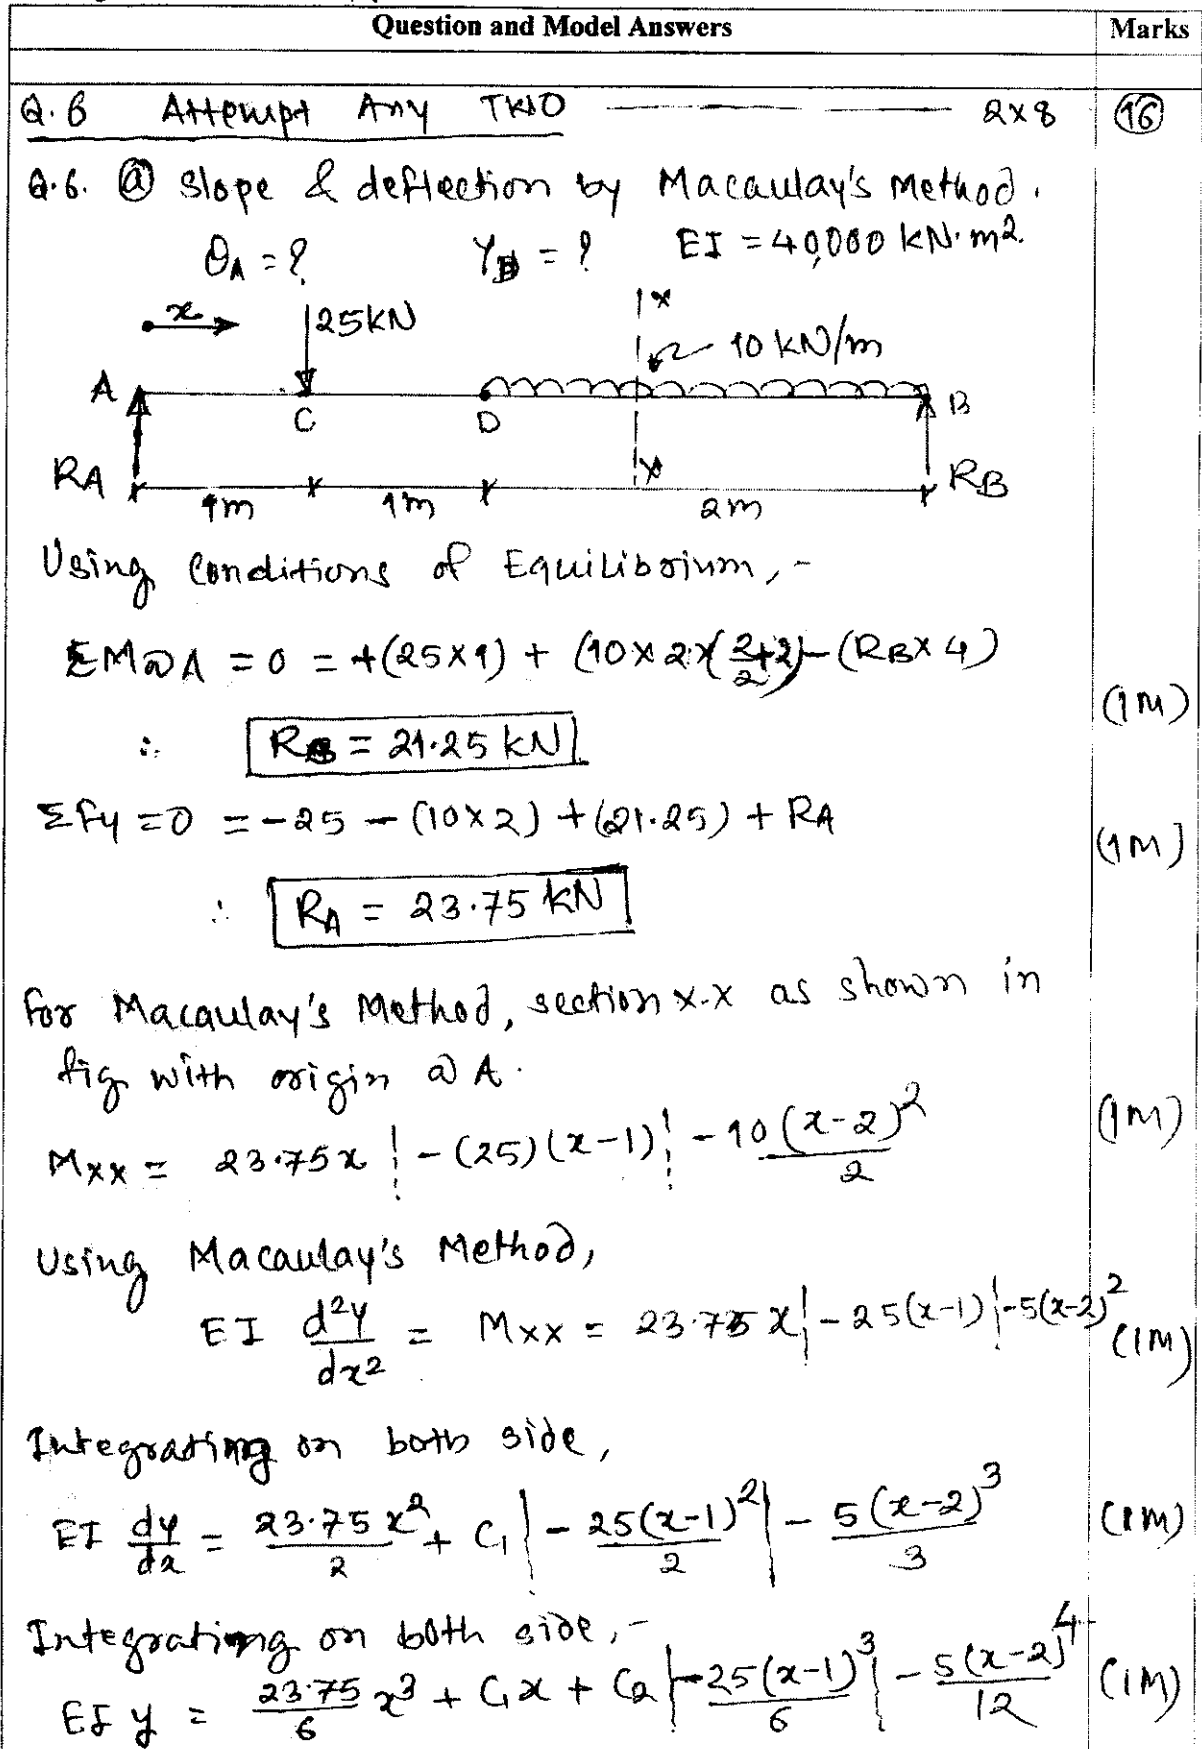 Question and Model Answers Marks
Q.6 Attempt Any TWO 2x8 (16)
Q.6. (a) Slope & deflection by Macaulay's Method.
θA = ? YD = ? EI = 40,000 kN·m2.
x 25kN x
10 kN/m
A C D B
RA x RB
1m 1m 2m
Using Conditions of Equilibrium, -
ΣM@A = 0 = +(25x1) + (10x2x(2/2+2) - (RBx4)
∴ RB = 21.25 kN (1M)
Σfy = 0 = -25 - (10x2) + (21.25) + RA
∴ RA = 23.75 kN (1M)
for Macaulay's Method, section x-x as shown in
fig with origin @ A.
Mxx = 23.75x ¦ - (25)(x-1) ¦ - 10(x-2)²/2 (1M)
Using Macaulay's Method,
EI d²y/dx² = Mxx = 23.75 x ¦ - 25(x-1) ¦ -5(x-2)² (1M)
Integrating on both side,
EI dy/dx = 23.75 x²/2 + C₁ | - 25(x-1)²/2 | - 5(x-2)³/3 (1M)
Integrating on both side, -
EI y = 23.75/6 x³ + C₁x + C₂ | -25(x-1)³/6 | - 5(x-2)⁴/12 (1M)